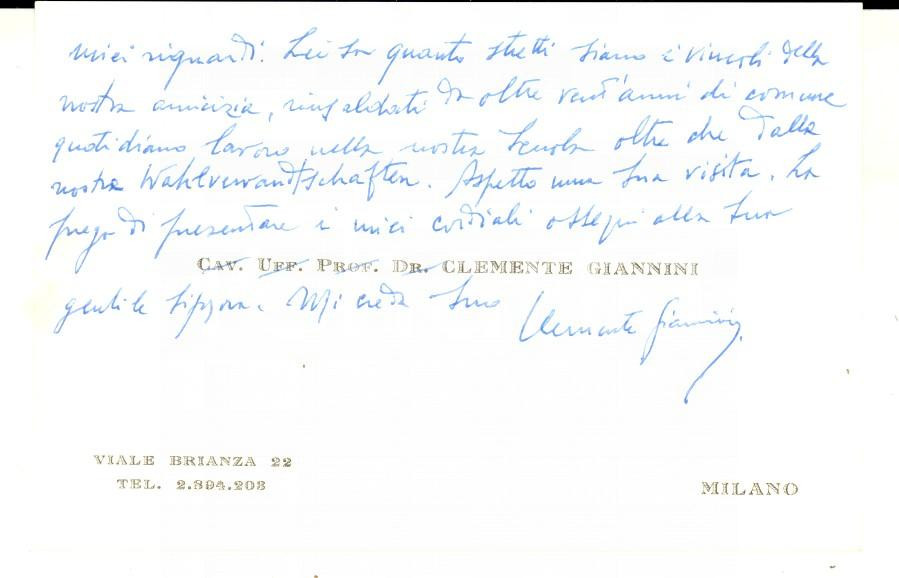 miei riguardi. Lei sa quanto stretti siano i vincoli della
nostra amicizia, rinsaldati da oltre vent'anni di comune
quotidiano lavoro nella nostra Scuola oltre che dalla
nostra Wahlverwandtschaften. Aspetto una Sua visita. La
prego di presentare i miei cordiali ossequi alla Sua
CAV. UFF. PROF. DR. CLEMENTE GIANNINI
gentile Signora. Mi creda Suo Clemente Giannini
VIALE BRIANZA 22
TEL. 2.894.203
MILANO